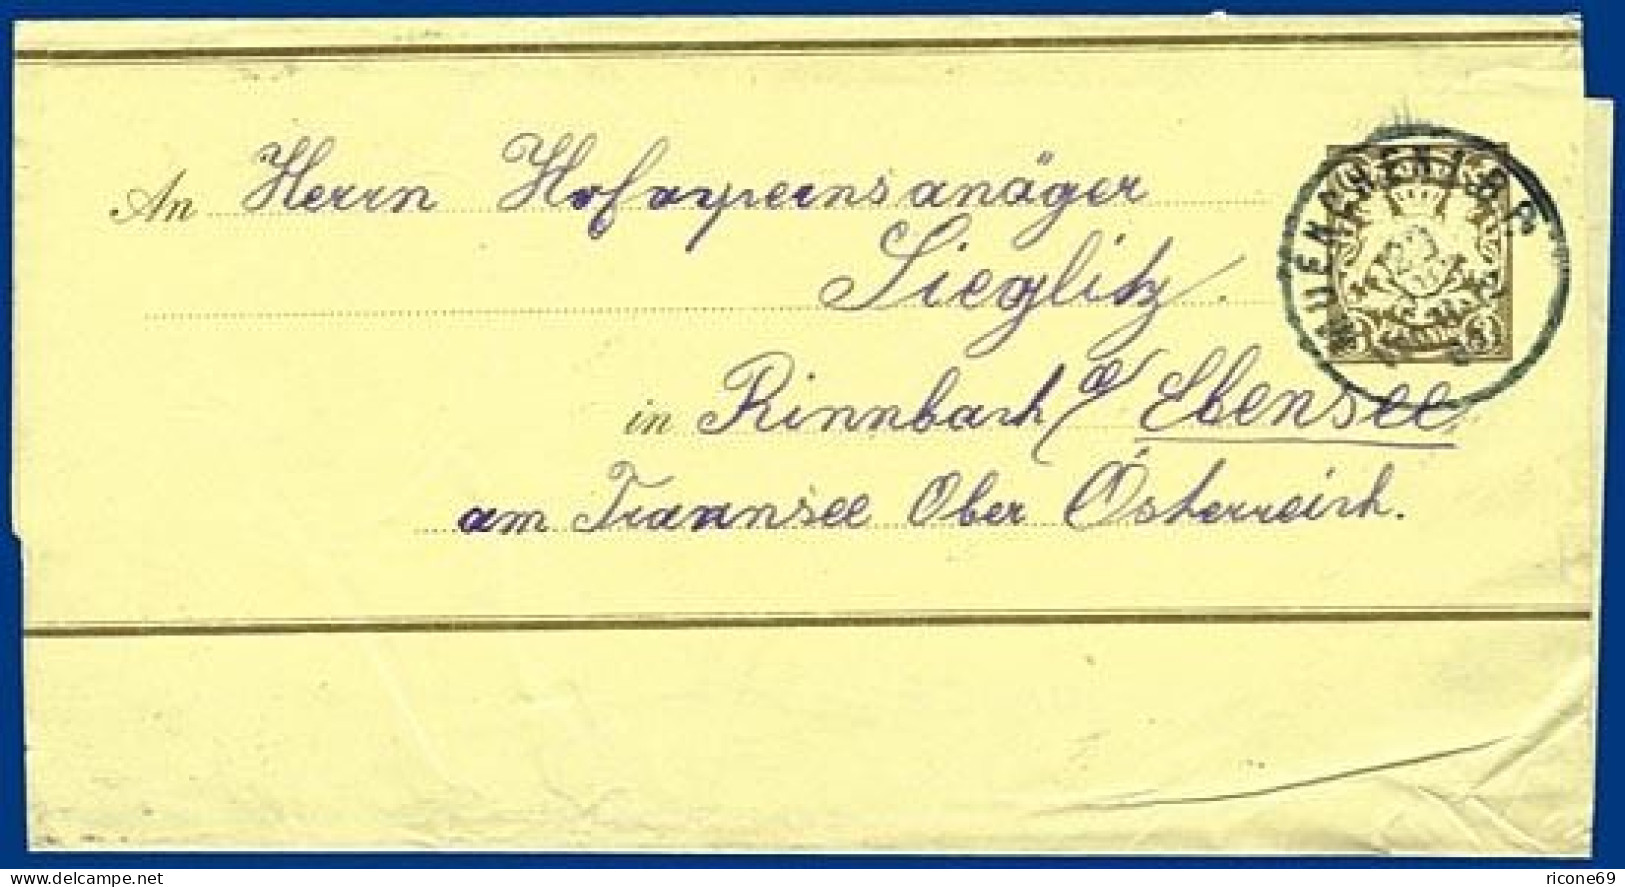 MUENCHEN I B.P.
An Herrn Hofopernsänäger
Sieglitz.
in Rinnbach a/ Ebensee
am Traunsee Ober Österreich.
delcampe.net
ricone69